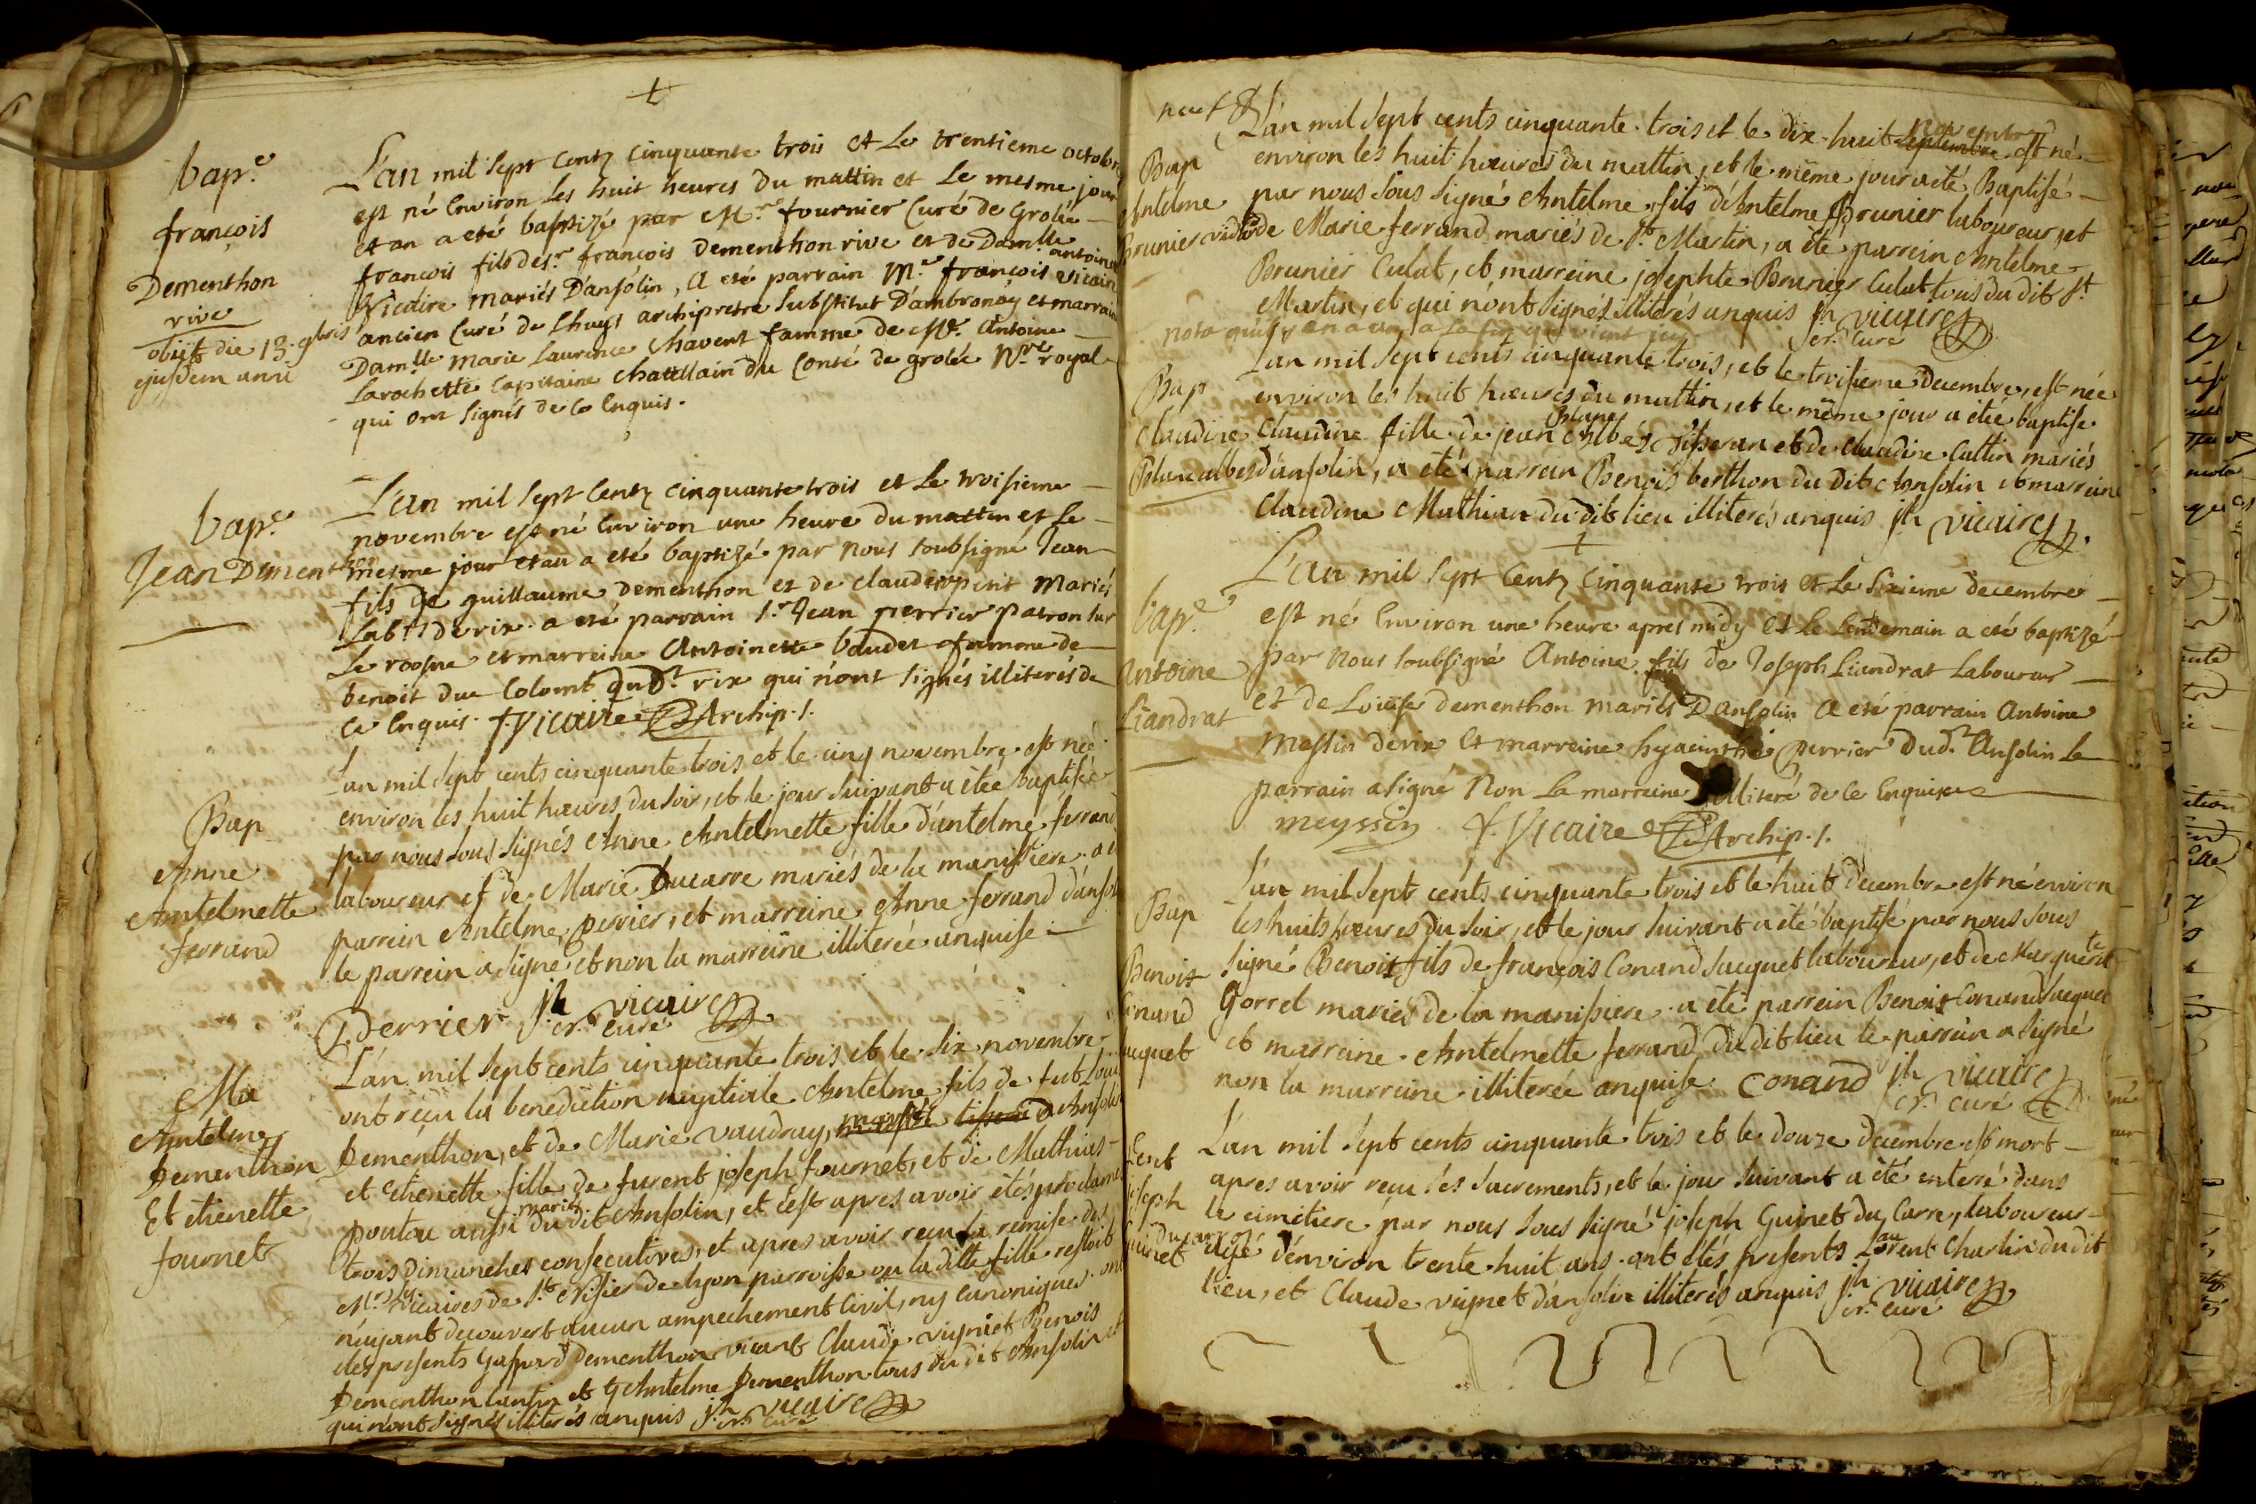 L'an mil sept centz cinquante trois et Le trentieme octobre
bap.e
est né Environ les huit heures du mattin et Le mesme jour
et an a eté baptizé par Mre fournier Curé de Groleé
françois
francois fils de sr françois dementhon rive et de Damlle antoinette
Dementhon
Vicaire mariés D'ansolin, a eté parrain Mre françois vicaire
rive
ancien Curé de Lhuys archipretre substitut D'ambronay et marraine
obiit die 13 9bris
Damlle Marie Laurence Chavent famme de Mr Antoine
ejusdem anni
Larochette Capitaine Chatellain du Conté de groleé Nre royal
qui ont signés de ce Enquis.
L'an mil sept Centz Cinquante trois et Le troisieme
bap.e
novembre est né Environ une heure du mattin et Le
Jean Dementhon
mesme jour et an a eté baptizé par nous soubsigné Jean
fils de guillaume dementhon et de claudine mariés
Labrs de rix. a eté parrain sr Jean perrier patron sur
Le roosne et marreine Antoinette baudet famme de
benoit du Colomb dudt rix qui n'ont signés illiterés de
Ce Enquis. f. Vicaire Archip. s.
L'an mil sept cents cinquante trois, et le cinq novembre est neé
environ les huit hœures du soir, et le jour suivant a éteé baptiseé
Bap
par nous sous signés Anne Antelmette fille d'antelme ferrand
Anne
laboureur et de Marie Ducarre mariés de la manissiere. a
Antelmette
parrein Antelme perrier, et marreine Anne ferrand d'ansolin
ferrand
le parrein a signé et non la marreine illitereé anquise
Perrier jh vicaire
cr. curé
L'an mil sept cents cinquante trois, et le six novembre
Ma
ont réçu la benediction nuptiale Antelme fils de fut
Antelme
Dementhon, et de Marie vaudray, d'Ansolin
Dementhon
et Etienette fille de furent joseph fournet, et de Mathias
Et etienette
poutou aussi mariés du dit Ansolin, et c'est apres avoir étés proclamés
fournet
trois dimanches consecutives, et apres avoir reçu la remise des
Mrs Vicaires de st Nisier de lyon parroisse ou la ditte fille restoit
n'ayant decouvert aucun ampechement Civil, ny Canonique. ont
étés presents gaspard Dementhon vicant Claude vignet Benois
Dementhon et Antelme Dementhon tous du dit Ansolin
qui n'ont signés illiterés anquis jh vicaire
cr. curé
neuf
L'an mil sept cents cinquante trois et le dix-huit septembre novembre est né
Bap
environ les huit hœures du mattin, et le même jour a été Baptisé
Antelme
par nous sous signé Antelme fils d'Antelme Brunier laboureur, et
Brunier
de Marie ferrand mariés de st Martin, a été parrein Antelme
Brunier Culat, et marreine josephte Brunier Culat tous du dit st
Martin, et qui n'ont signés illiterés anquis jh vicaire
cr. curé
L'an mil sept cents cinquante trois, et le troisieme decembre, est née
Bap
environ les huit hœures du mattin, et le même jour a éteé baptise
Claudine
Claudine fille de jean Blanc Albés tisseran et de Claudine Cattin mariés
Blanc albes
d'ansolin, a été parrein Benois berthon du dit Ansolin et marreine
Claudine Mathian du dit lieu illiterés anquis jh vicaire
L'an mil sept Centz Cinquante trois et Le sixieme decembre
bap.e
est né Environ une heure apres midy et Le Lendemain a eté baptizé
Antoine
par nous soubsigné Antoine fils de Joseph Liandrat Laboureur
Liandrat
et de Loüise dementhon mariés D'ansolin a eté parrain Antoine
Messin de rix et marreine hyacinthe perrier dudt Ansolin Le
parrain a signé Non La marreine illiteré de ce Enquise
meyssin f. Vicaire Archip. s.
L'an mil sept cents cinquante trois et le huit decembre est né environ
Bap
les huits hœures du soir, et le jour suivant a été baptisé par nous sous
Benoit
signé Benoit fils de françois Conand Jacquet laboureur, et de Marguerite
Conand
Gorrel mariés de la manissiere. a été parrein Benoit Conand Jacquet
Jacquet
et marreine Antelmette ferrand du dit lieu le parrein a signé
non la marreine illitereé anquise Conand jh vicaire
cr. curé
L'an mil sept cents cinquante trois et le douze decembre est mort
apres avoir réçu lés sacrements, et le jour suivant a été enterré dans
joseph
le cimetiere par nous sous signé joseph Guinet du Carre, laboureur
Guinet du carre
agé d'environ trente huit ans. ont étés presents Laurent Charlin du dit
lieu, et Claude vignet d'ansolin illiterés anquis jh vicaire
cr. curé